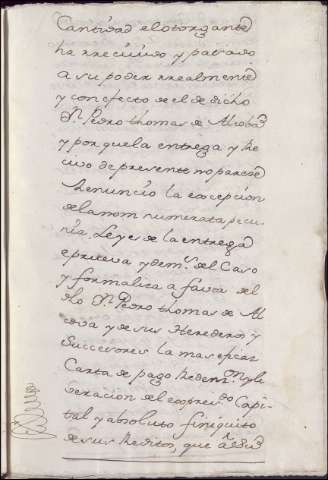 Cantidad el otorgante
ha rrecivido y pasado
a su poder rrealmente
y con efecto de el dicho
Dn. Pedro thomas de Alcoba
y por que la entrega y Re
civo de presente no parece
Renuncio la excepcion
de la nom numerata pecu
nia, Leyes de la entrega
e prueva y dems. del Caso
y formaliza a favor del
dho Dn. Pedro thomas de Al
cova y de sus Herederos y
Subcesores la mas eficaz
Carta de pago Redempn. y li
veracion del expresdo. Capi
tal y absoluto finiquito
de sus Reditos, que a